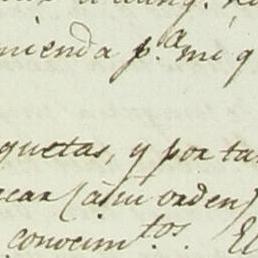 mienda p.ª mi q
quetas, y por ta
car (à su orden)
conocim.tos. El